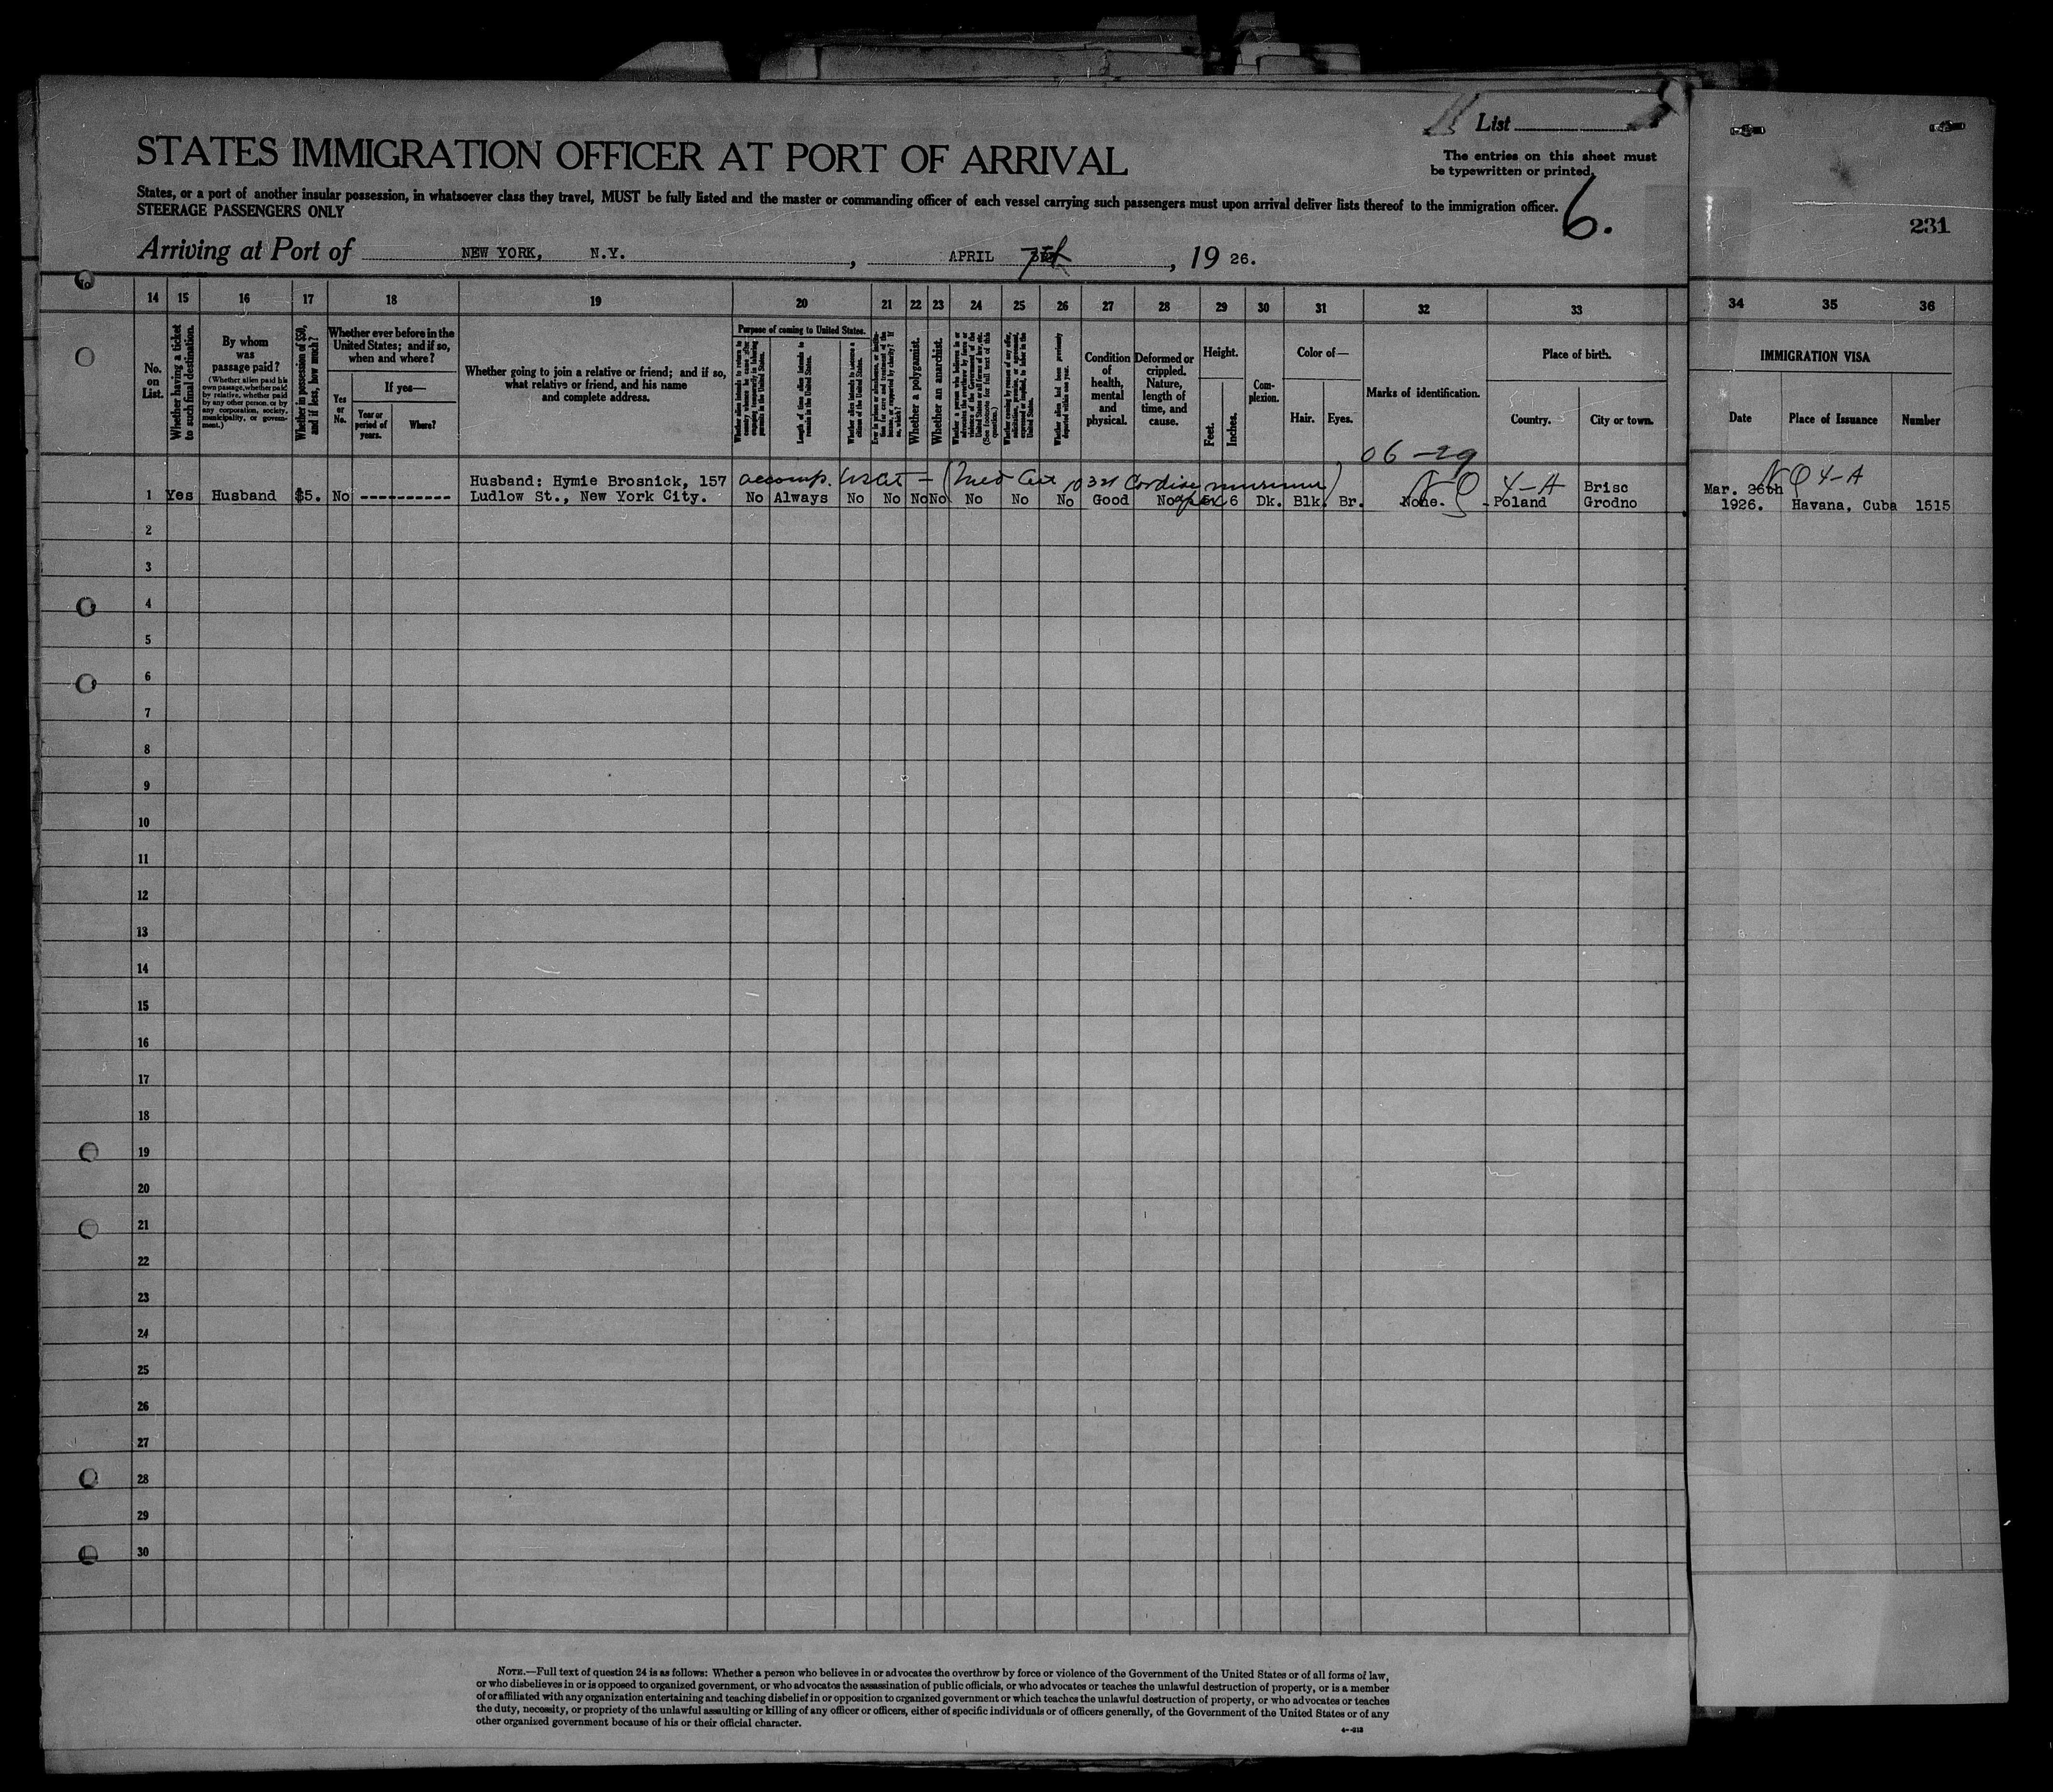 List
STATES IMMIGRATION OFFICER AT PORT OF ARRIVAL
The entries on this sheet must
be typewritten or printed.
States, or a port of another insular possession, in whatsoever class they travel, MUST be fully listed and the master or commanding officer of each vessel carrying such passengers must upon arrival deliver lists thereof to the immigration officer.
STEERAGE PASSENGERS ONLY
6.
231
Arriving at Port of NEW YORK, N.Y. , APRIL 7th , 19 26.
14 15 16 17 18 19 20 21 22 23 24 25 26 27 28 29 30 31 32 33 34 35 36
No. on List.
Whether having a ticket to such final destination.
By whom was passage paid?
(Whether alien paid his own passage, whether paid by relative, whether paid by any other person, or by any corporation, society, municipality, or government.)
Whether in possession of $50, and if less, how much?
Whether ever before in the United States; and if so, when and where?
Yes or No.
If yes—
Year or period of years.
Where?
Whether going to join a relative or friend; and if so, what relative or friend, and his name and complete address.
Purpose of coming to United States.
Whether alien intends to return to country whence he came after engaging temporarily in laboring pursuits in the United States.
Length of time alien intends to remain in the United States.
Whether alien intends to become a citizen of the United States.
Whether a polygamist.
Whether an anarchist.
Condition of health, mental and physical.
Deformed or crippled. Nature, length of time, and cause.
Height.
Feet.
Inches.
Complexion.
Color of—
Hair.
Eyes.
Marks of identification.
Place of birth.
Country.
City or town.
IMMIGRATION VISA
Date
Place of Issuance
Number
06-29
Husband: Hymie Brosnick, 157 accomp. (Med Cert 10321 Cardiac murmur) 4-A Brisc Mar. 26th NQ 4-A
1 Yes Husband $5. No ----------- Ludlow St., New York City. No Always No No No No No No No Good No 6 Dk. Blk. Br. None. Poland Grodno 1926. Havana, Cuba 1515
2
3
4
5
6
7
8
9
10
11
12
13
14
15
16
17
18
19
20
21
22
23
24
25
26
27
28
29
30
NOTE.—Full text of question 24 is as follows: Whether a person who believes in or advocates the overthrow by force or violence of the Government of the United States or of all forms of law,
or who disbelieves in or is opposed to organized government, or who advocates the assassination of public officials, or who advocates or teaches the unlawful destruction of property, or is a member
of or affiliated with any organization entertaining and teaching disbelief in or opposition to organized government or which teaches the unlawful destruction of property, or who advocates or teaches
the duty, necessity, or propriety of the unlawful assaulting or killing of any officer or officers, either of specific individuals or of officers generally, of the Government of the United States or of any
other organized government because of his or their official character.